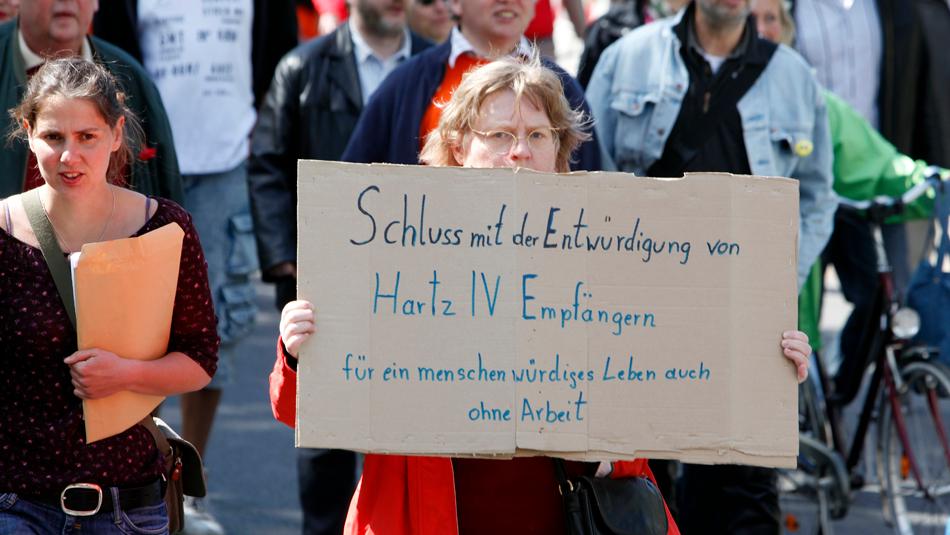 Schluss mit der Entwürdigung von
Hartz IV Empfängern
für ein menschenwürdiges Leben auch
ohne Arbeit